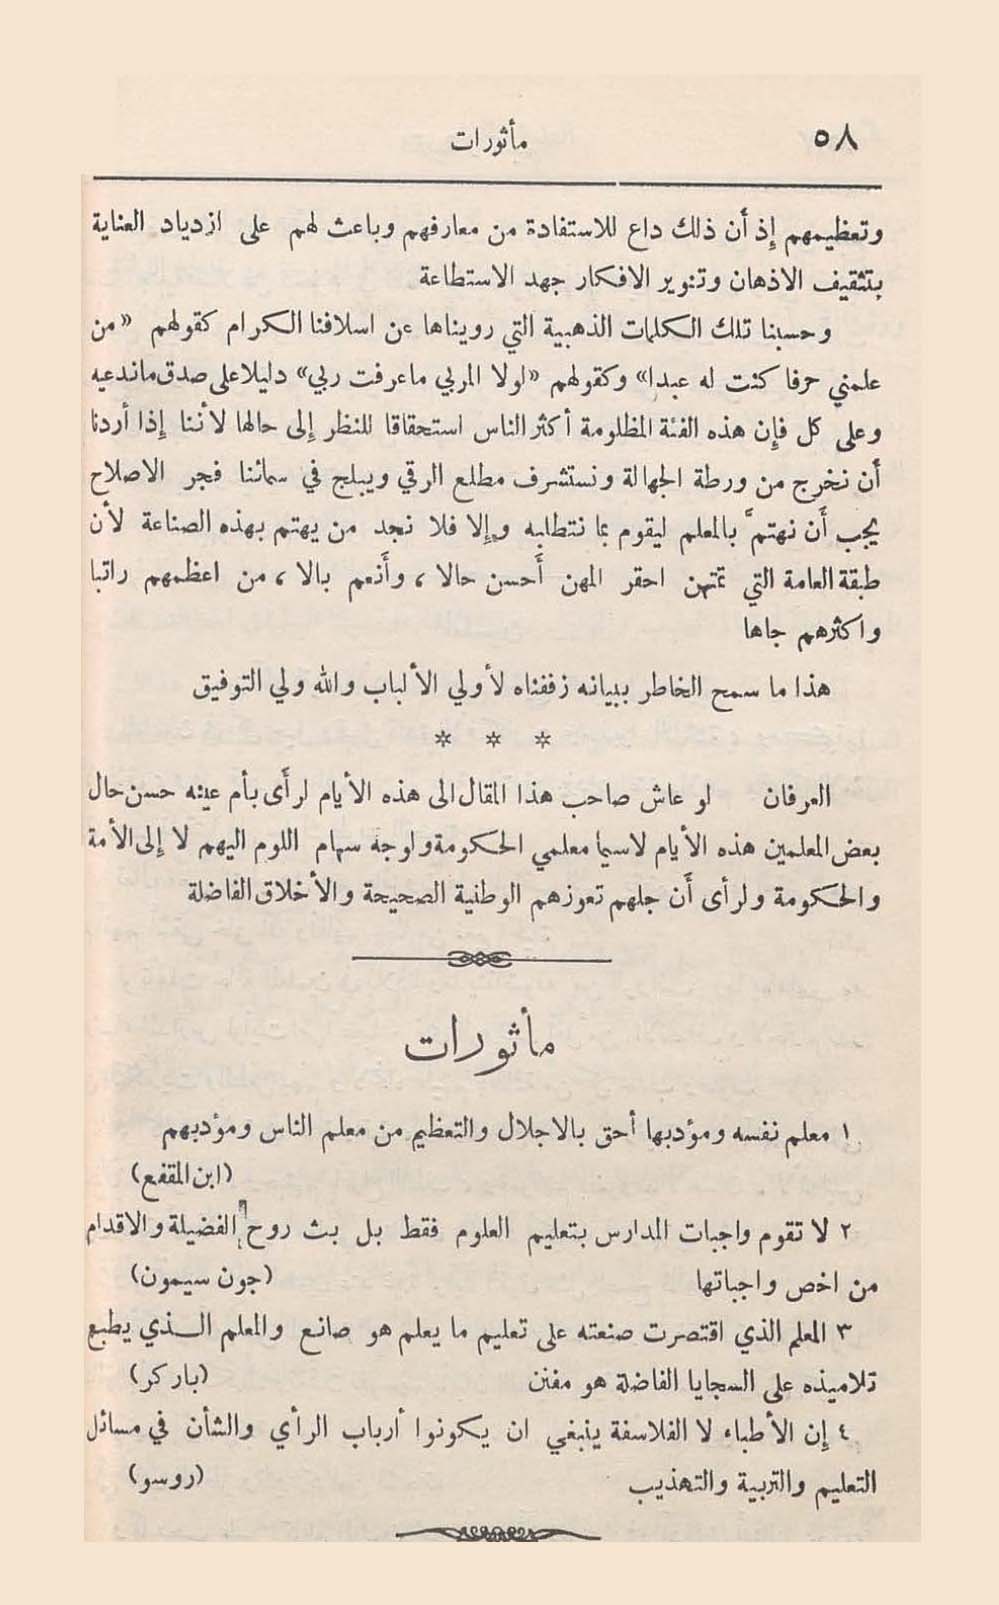 ٥٨
مأثورات
وتعظيمهم إذ أن ذلك داع للاستفادة من معارفهم وباعث لهم على ازدياد العناية
بتثقيف الاذهان وتنوير الافكار جهد الاستطاعة
وحسبنا تلك الكلمات الذهبية التي رويناها عن اسلافنا الكرام كقولهم «من
علمني حرفا كنت له عبدا» وكقولهم «لولا المربي ماعرفت ربي» دليلا على صدق ماندعيه
وعلى كل فإن هذه الفئة المظلومة أكثر الناس استحقاقا للنظر إلى حالها لأننا إذا أردنا
أن نخرج من ورطة الجهالة ونستشرف مطلع الرقي ويبلج في سمائنا فجر الاصلاح
يجب أن نهتمّ بالمعلم ليقوم بما نتطلبه وإلا فلا نجد من يهتم بهذه الصناعة لأن
طبقة العامة التي تمتهن احقر المهن أحسن حالا ، وأنعم بالا ، من اعظمهم راتبا
واكثرهم جاها
هذا ما سمح الخاطر ببيانه زففناه لأولي الألباب والله ولي التوفيق
* * *
العرفان لو عاش صاحب هذا المقال الى هذه الأيام لرأى بأم عينه حسن حال
بعض المعلمين هذه الأيام لاسيما معلمي الحكومة ولوجه سهام اللوم اليهم لا إلى الأمة
والحكومة ولرأى أن جلهم تعوزهم الوطنية الصحيحة والأخلاق الفاضلة
مأثورات
١ معلم نفسه ومؤدبها أحق بالاجلال والتعظيم من معلم الناس ومؤدبهم
(ابن المقفع)
٢ لا تقوم واجبات المدارس بتعليم العلوم فقط بل بث روح الفضيلة والاقدام
من اخص واجباتها (جون سيمون)
٣ المعلم الذي اقتصرت صنعته على تعليم ما يعلم هو صانع والمعلم الـذي يطبع
تلاميذه على السجايا الفاضلة هو مفنن (باركر)
٤ إن الأطباء لا الفلاسفة ينبغي ان يكونوا أرباب الرأي والشأن في مسائل
التعليم والتربية والتهذيب (روسو)